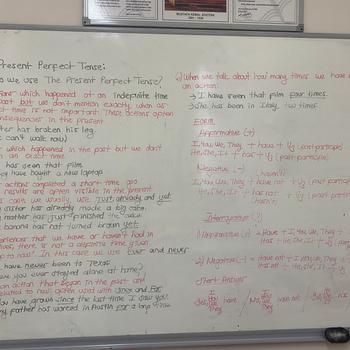 MUSTAFA KEMAL ATATÜRK
Present Perfect Tense:
we use The Present Perfect Tense?
which happened at an indefinite time
past but we don't mention exactly, when as
time is not important. These actions often
consequences in the present
has broken his leg.
can't walk now)
which happened in the past but we don't
an exact time.
has seen that film
have bought a new laptop
actions completed a short time ago
results are often visible in the present
case we usually use just, already and yet.
sister has already made a big cake.
mother has just finished the cake
banana has not turned brown yet.
that we have or haven't had in
lives, there is not a definite time given
to now). In this case we use ever and never
have never been to Texas
you ever stayed alone at home?
action that began in the past and
related to now, often used with since and for
have grown since the last time I saw you.
father has worked in Austin for a long time
When we talk about how many times we have
an action:
→ I have seen that film four times.
→ She has been in Italy, two times
FORM
Affirmative (+)
I, You, We, They + have + V3 (past participle)
He, She, It + has + V3 (past participle)
Negative (-)
haven't
I, You, We, They + have not + V3 (past participle)
He, She, It + has not + V3 (past participle)
(hasn't)
Interrogative (?)
Affirmative (+) → Have + I, You, We, They +
Has + He, She, It + V3 (past
Negative (-) → Have not + I, You, We, They
Has not + He, She, It + V3
Short Answer
Yes, They have
No, They have not